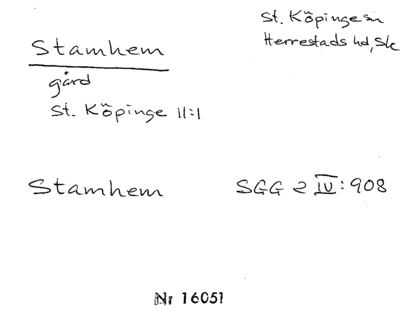 St. Köpinge sn
Herrestads hd, Sk
Stamhem
gård
St. Köpinge 11:1
Stamhem SGG 2 IV: 908
Nr 16051